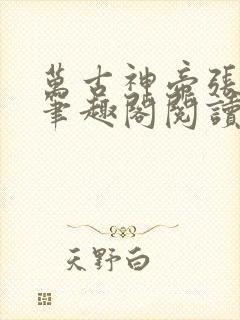 萬古神帝張
筆趣閣閱讀
天野白